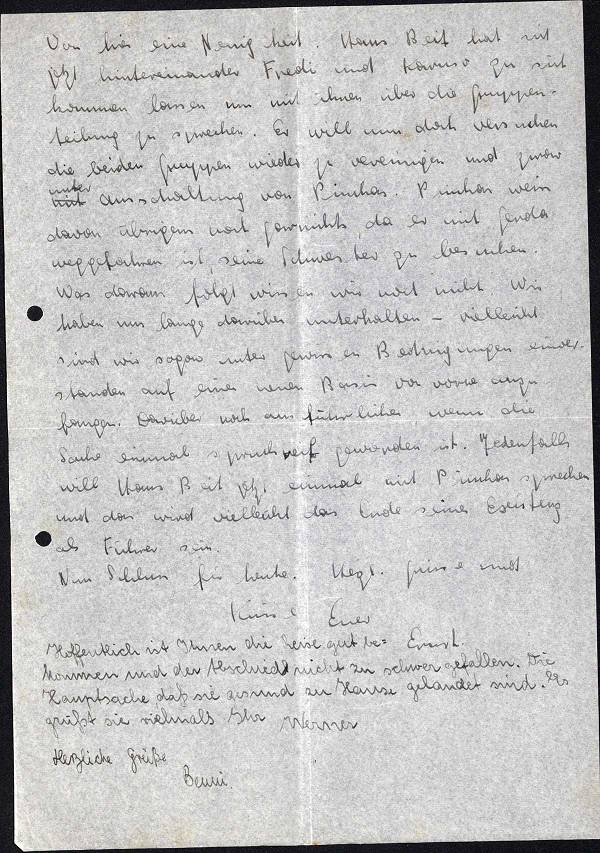 Von hier eine Neuigkeit. Hans Beit hat sich
jetzt hintereinander Fredi und Karuso zu sich
kommen lassen um mit ihnen über die Gruppen-
teilung zu sprechen. Er will nun doch versuchen
die beiden Gruppen wieder zu vereinigen und zwar
unter Ausschaltung von Pinchas. Pinchas weiss
davon übrigens noch garnichts, da er mit
weggefahren ist, seine Schwester zu besuchen.
Was daraus folgt wissen wir noch nicht. Wir
haben uns lange darüber unterhalten – vielleicht
sind wir sogar unter gewissen Bedingungen einver-
standen auf einer neuen Basis von vorne anzu
fangen. Darüber noch ausführlicher wenn die
Sache einmal spruchreif geworden ist. Jedenfalls
will Hans Beit jetzt einmal mit Pinchas sprechen
und das wird vielleicht das Ende seiner Existenz
als Führer sein.
Nun Schluss für heute. Herzl. Grüsse und
Küsse Euer
Ernst.
Hoffentlich ist Ihnen die Reise gut be=
kommen und der Abschied nicht zu schwer gefallen. Die
Hauptsache daß sie gesund zu Hause gelandet sind. Es
grüßt sie vielmals Ihr Werner
Herzliche Grüße
Benni.